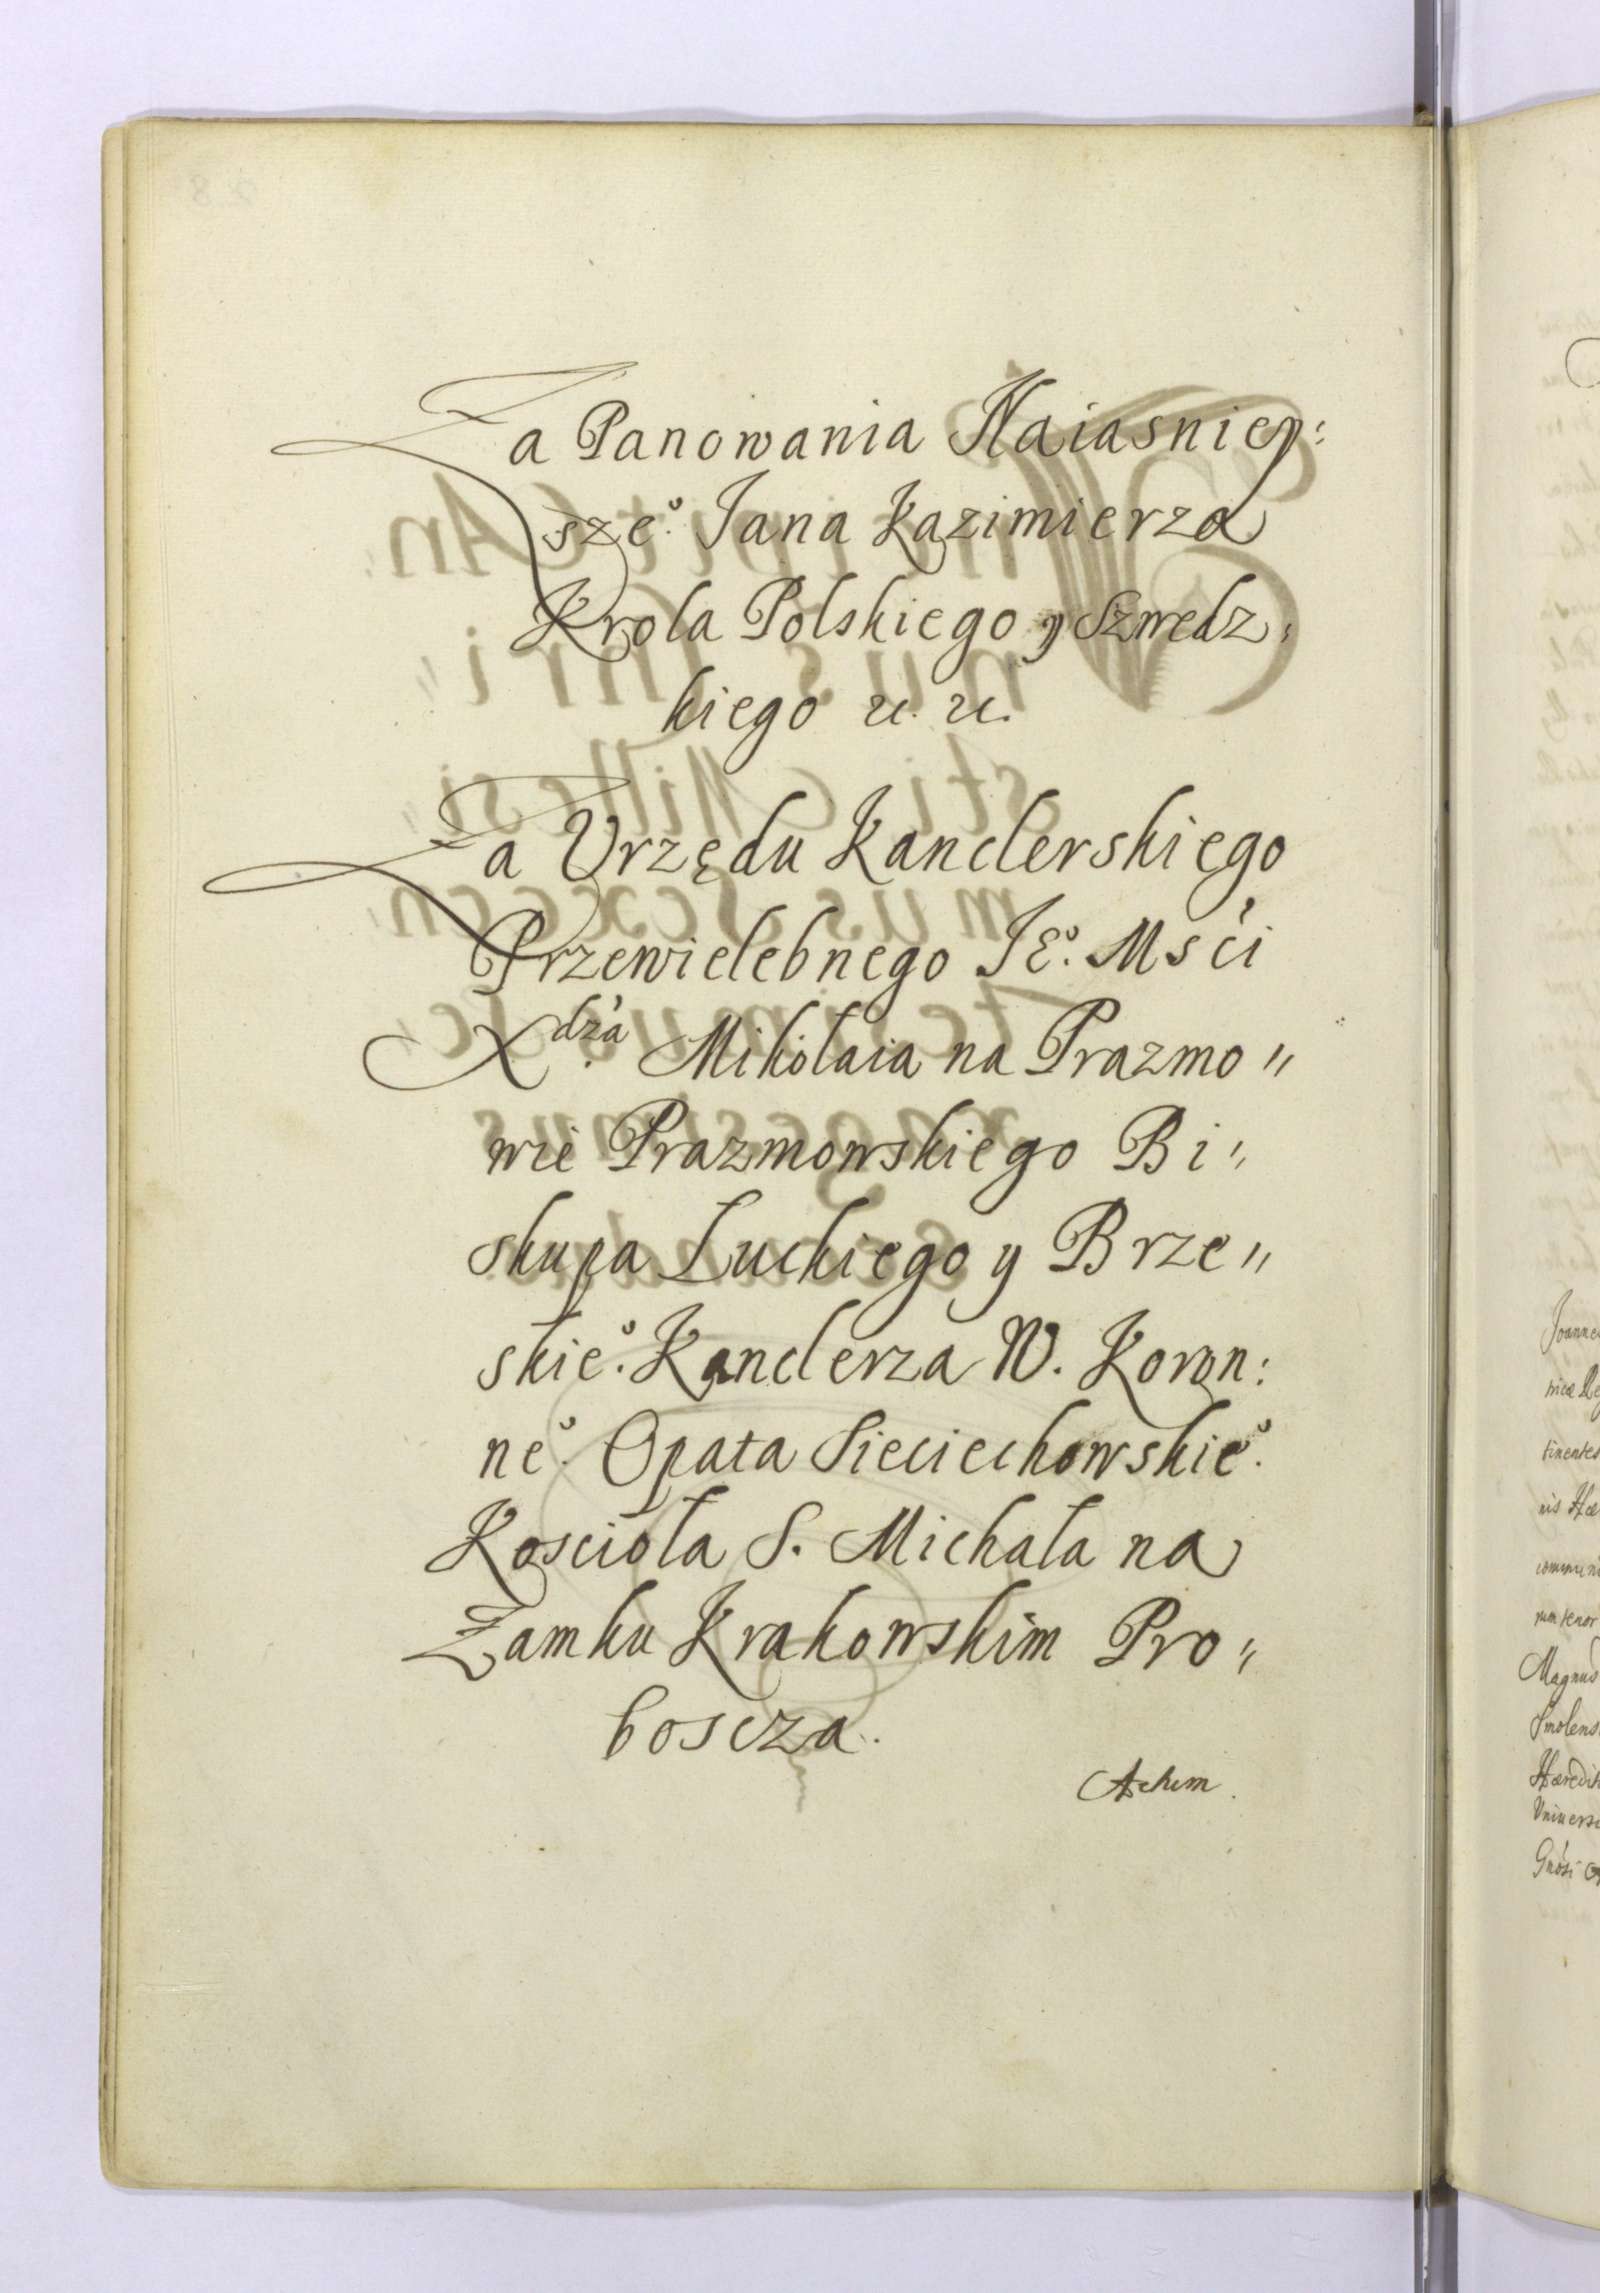 Za Panowania Naiasniey:
szeº. Jana Kazimierza
Krola Polskiego y Szwedz:
kiego etc. etc.
Za Urzędu Kanclerskiego
Przewielebnego Jeº. Mści
Xdza Mikołaia na Prazmo"
wie Prazmowskiego Bi"
skupa Łuckiego y Brze"
skieº. Kanclerza W. Koron:
neº. Opata Sieciechowskieº.
Koscioła S. Michała na
Zamku Krakowskim Pro"
boscza.
Actum
Joannes
Magnus
Smolens